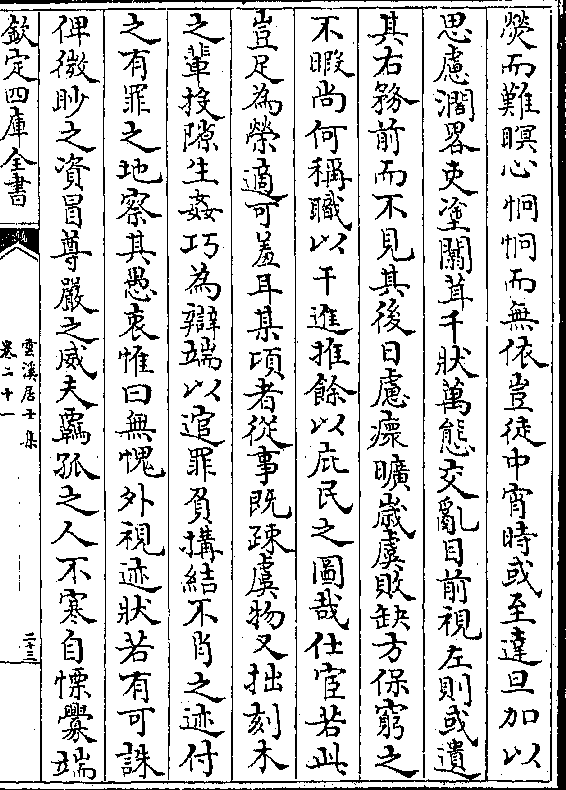 熒而難瞑心恫恫而無依豈徒中宵時或至達旦加以
思慮濶畧吏塗闒茸千狀萬態交亂目前視左則或遺
其右務前而不見其後日慮瘝曠歲虞敗缺方保窮之
不暇尚何稱職以干進推餘以庇民之圖哉仕宦若此
豈足為榮適可羞耳某頃者從事既疎虞物又拙刻木
之輩投隙生姦巧為辯端以逭罪負搆結不肖之迹付
之有罪之地察其愚衷惟曰無愧外視迹狀若有可誅
俾微眇之資冒尊嚴之威夫羈孤之人不寒自慄釁端
欽定四庫全書
雲溪居士集
卷二十一
二十三